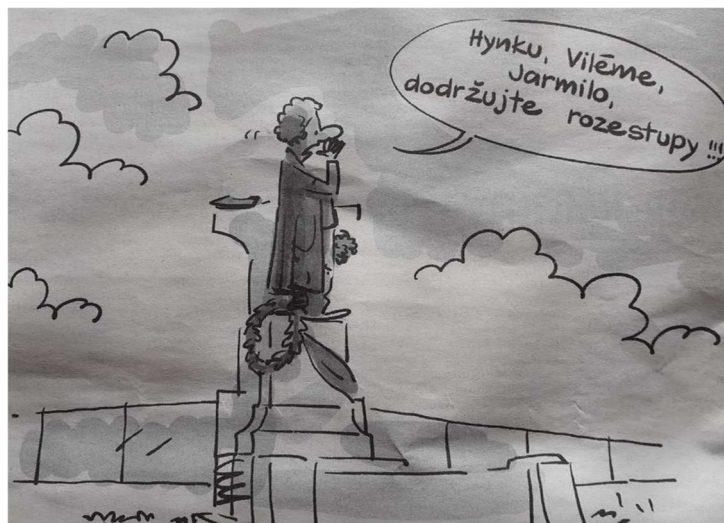 Hynku, Viléme,
Jarmilo,
dodržujte rozestupy !!!